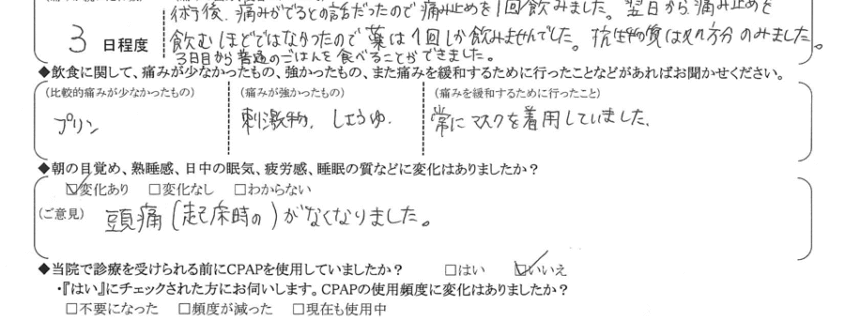 術後、痛みがでるとの話だったので痛み止めを1回飲みました。翌日から痛み止めを
3 日程度 飲むほどではなかったので薬は1回しか飲みませんでした。抗生物質は処方分のみました。
3日目から普通のごはんを食べることができました。
◆飲食に関して、痛みが少なかったもの、強かったもの、また痛みを緩和するために行ったことなどがあればお聞かせください。
(比較的痛みが少なかったもの) (痛みが強かったもの) (痛みを緩和するために行ったこと)
プリン 刺激物、しょうゆ. 常にマスクを着用していました.
◆朝の目覚め、熟睡感、日中の眠気、疲労感、睡眠の質などに変化はありましたか?
☑変化あり □変化なし □わからない
(ご意見) 頭痛(起床時の)がなくなりました。
◆当院で診療を受けられる前にCPAPを使用していましたか? □はい ☑いいえ
・『はい』にチェックされた方にお伺いします。CPAPの使用頻度に変化はありましたか?
□不要になった □頻度が減った □現在も使用中